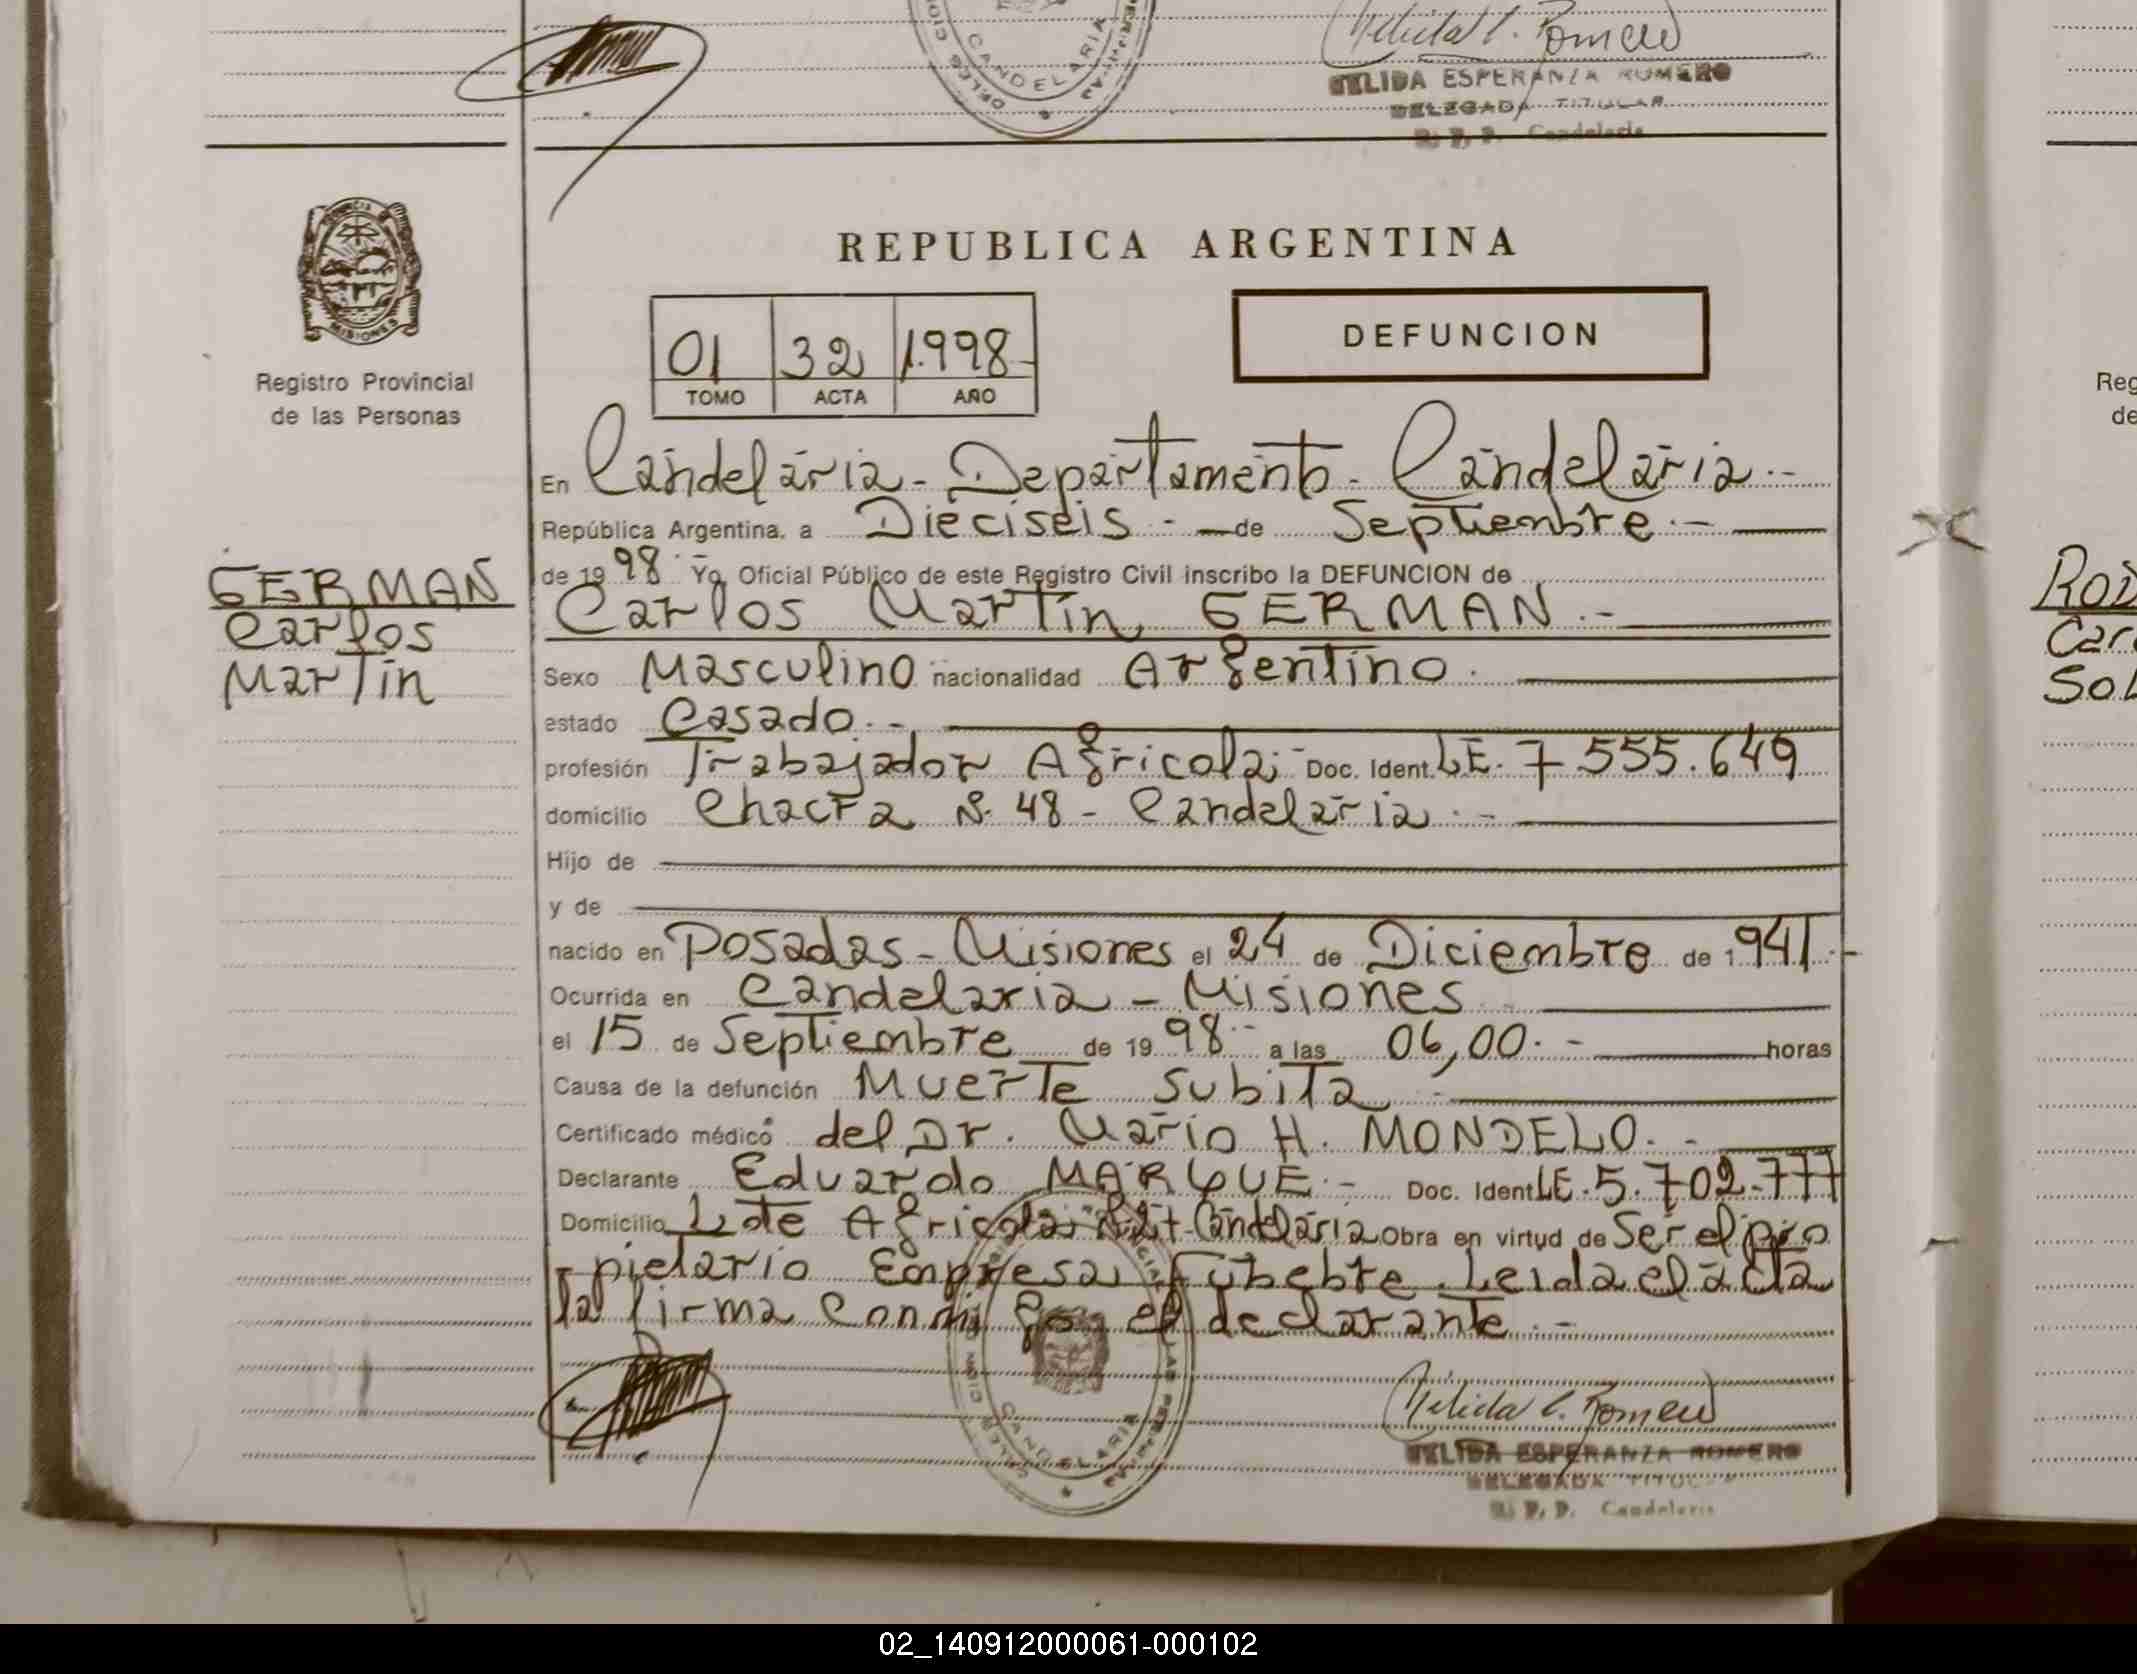 Nelida E. Romero
NELIDA ESPERANZA ROMERO
DELEGADA TITULAR
R. P. P. Candelaria
CANDELARIA
REPUBLICA ARGENTINA
MISIONES
Registro Provincial
de las Personas
01 32 1.998
TOMO ACTA AÑO
DEFUNCION
En Candelaria - Departamento - Candelaria.-
República Argentina, a Dieciseis.- de Septiembre.-
de 1998.- Yo, Oficial Público de este Registro Civil inscribo la DEFUNCION de
Carlos Martin GERMAN.-
GERMAN
Carlos
Martin
Sexo Masculino nacionalidad Argentino.
estado Casado.-
profesión Trabajador Agricola.- Doc. Ident. L.E. 7.555.649
domicilio Chacra N° 48 - Candelaria.-
Hijo de
y de
nacido en Posadas - Misiones el 24 de Diciembre de 1.941.-
Ocurrida en Candelaria - Misiones
el 15 de Septiembre de 1998.- a las 06,00.- horas
Causa de la defunción Muerte subita.-
Certificado médico del Dr. Mario H. MONDELO.-
Declarante Eduardo MARQUE.- Doc. Ident. L.E. 5.702.777
Domicilio Lote Agricola Candelaria Obra en virtud de Ser el pro
pietario Empresa Funebre. Leida el acta
la firma conmigo el declarante.-
Nelida E. Romero
NELIDA ESPERANZA ROMERO
DELEGADA TITULAR
R. P. P. Candelaria
CANDELARIA
Reg
de
ROD
Car
Sol
02_140912000061-000102